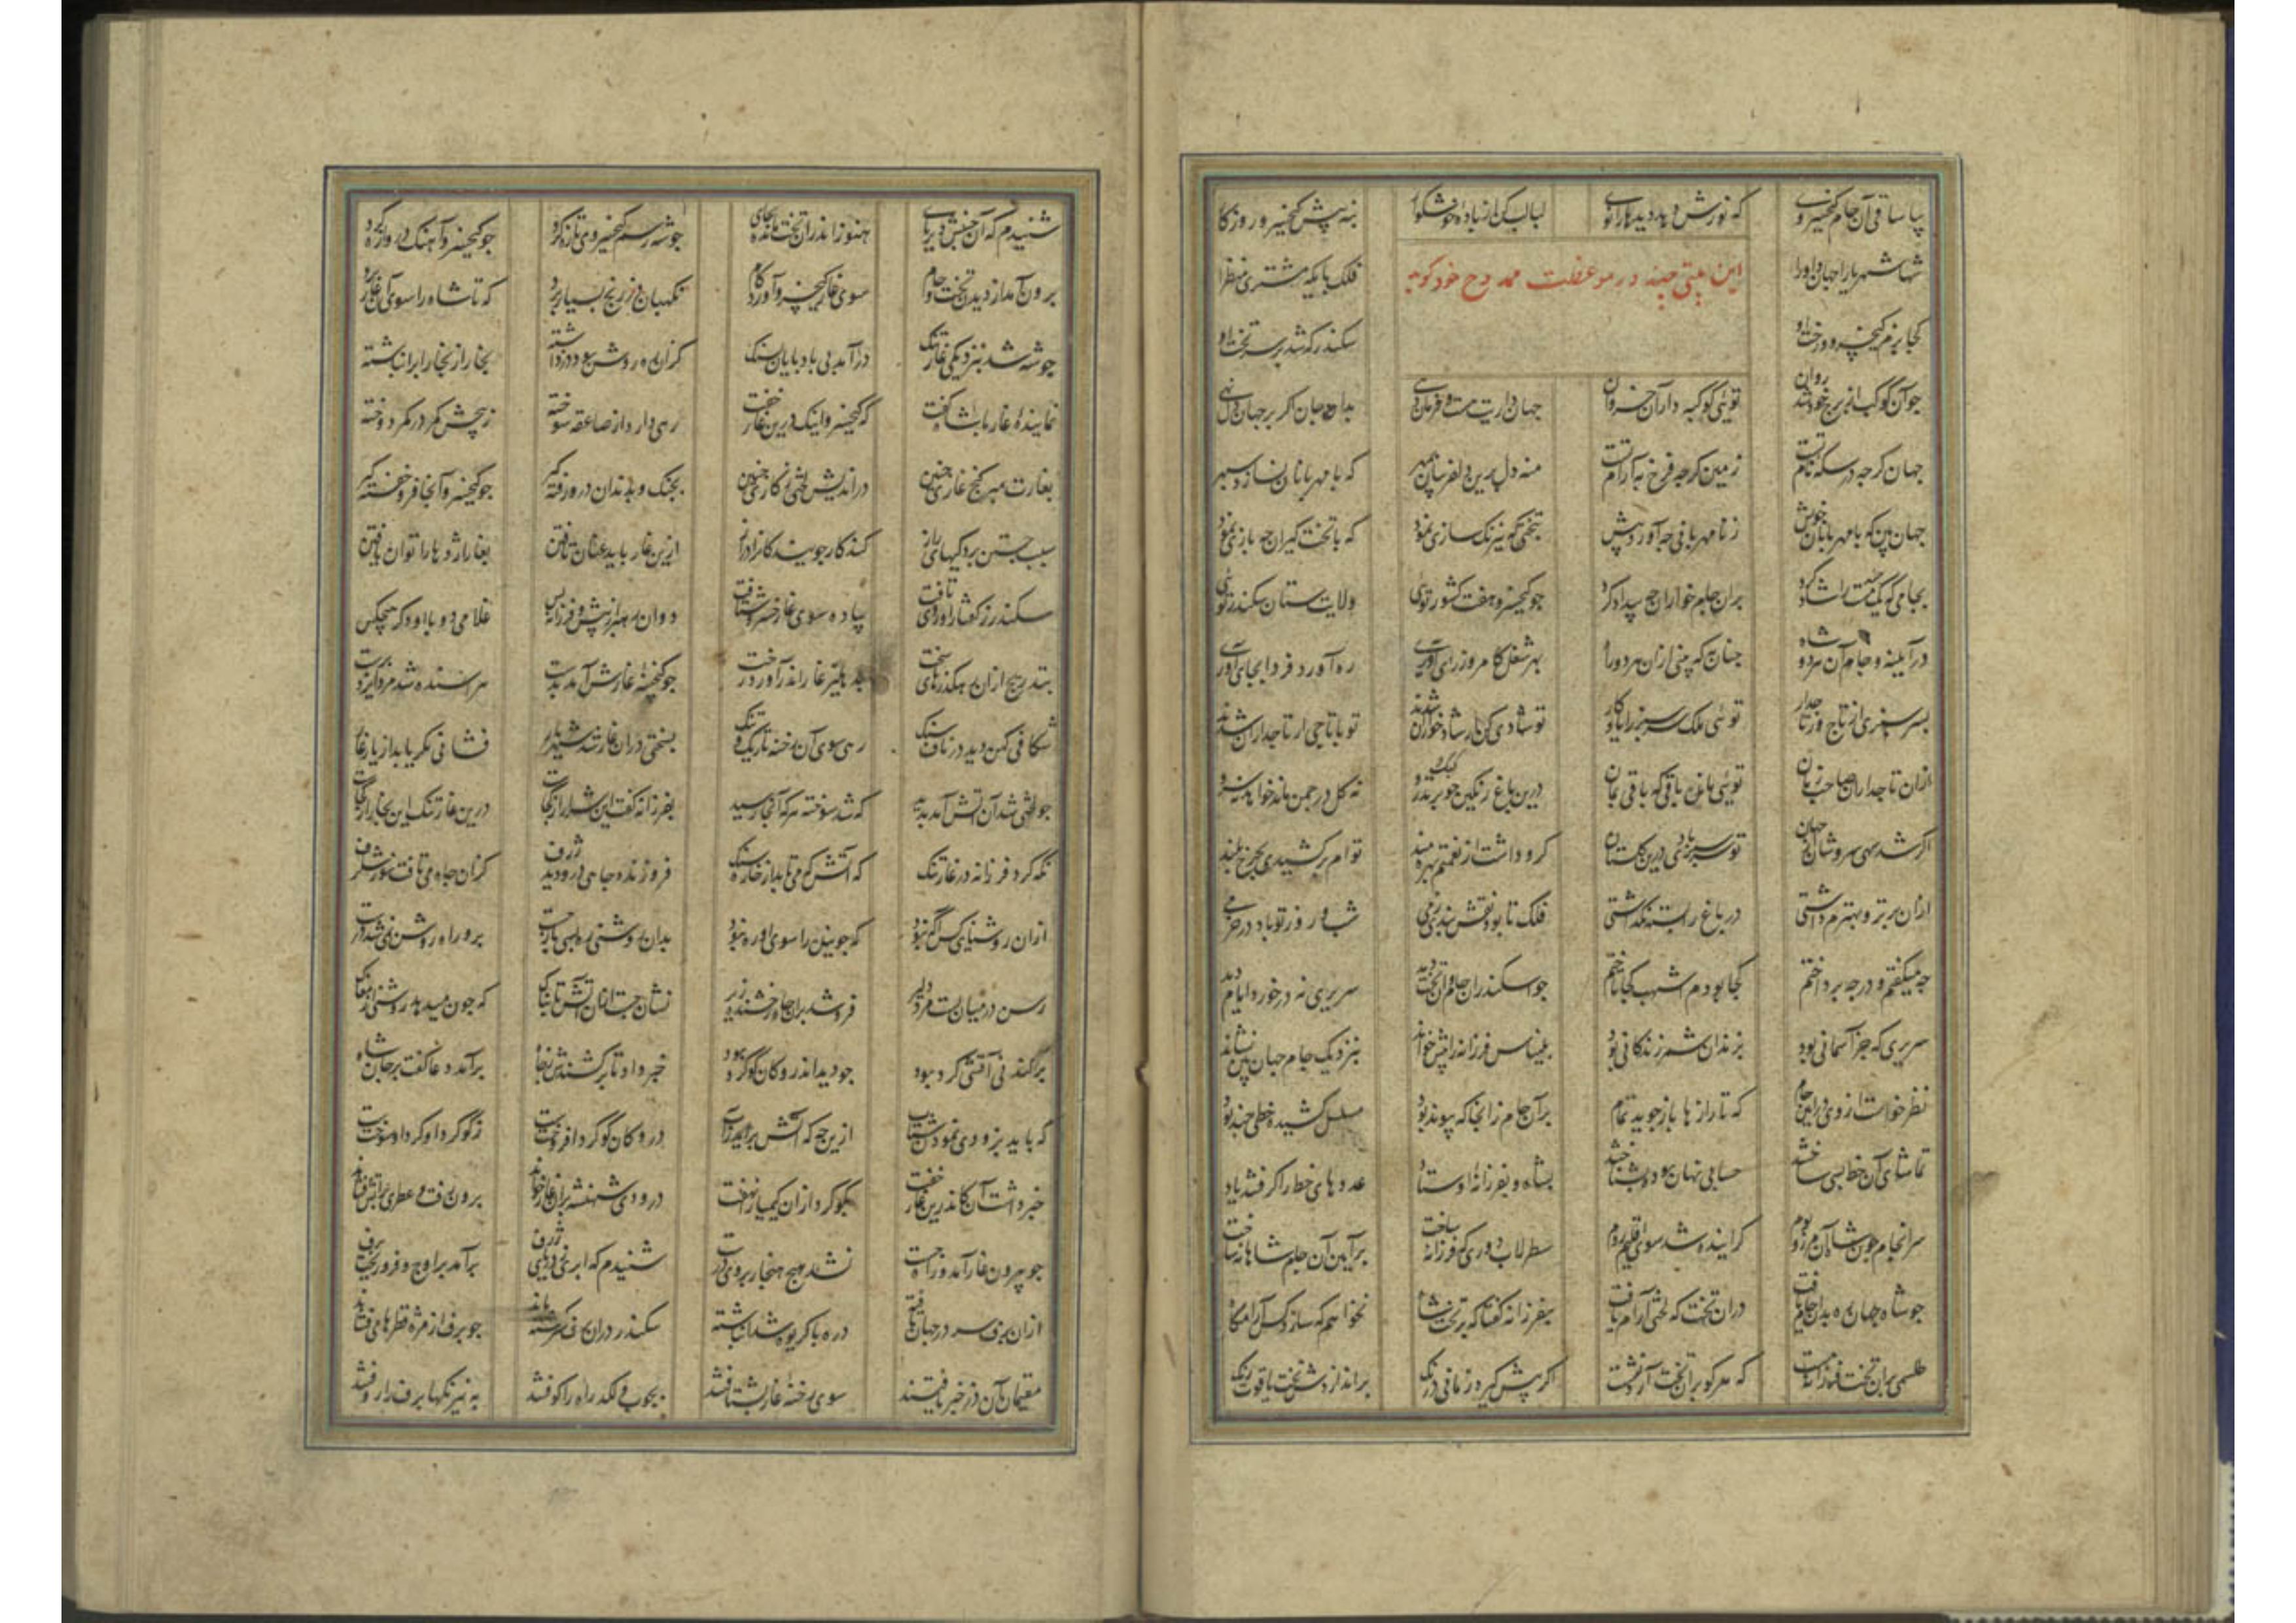 بیا ساقی آن جام کیخسروی که نورش دهد دیدها را نوی لبالب کن از باده خوشگوار بنه پیش کیخسرو روزگار
شها شهریارا جهان داورا فلک پایگه مشتری منظرا
این بیتی چند در موعظت ممدوح خود گوید
کجا بزم کیخسرو و رخت او سکندر که شد بر سر تخت او
چو آن کوکب از برج خود شد روان توئی کوکبه دار آن خسروان جهان داریت هست و فرمان دهی گر بر جهان دل نهی
جهان گرچه در سکه نام تست زمین گرچه فرخ به آرام تست منه دل برین دلفریبان بمهر که با مهربانان نسازد سپهر
جهان بین که با مهربانان خویش ز نامهربانی چه آورد پیش بتختی که نیرنگ سازی نمود که با تخت گیران چه بازی نمود
بجامی که یک مست را شاد کرد بران جام خواران چه بیداد کرد چو کیخسرو هفت کشور توئی ولایت ستان سکندر توئی
در آیینه و جام آن هر دو شاه چنان به که بینی ازان هر دو راه بهر شغل کامروز رای آوری ره آورد فردا بجای آوری
بسر سبزی از تاج ور تاجدار توئی ملک سرسبز را یادگار تو شادی کن ار شاه خواران شدند تو با تاجی ار تاجداران شدند
ازان تاجداران صاحب زمان توئی مانده باقی که باقی بمان درین باغ رنگین چو پر تذرو نه گل در چمن ماند خواهد نه سرو
اگر شد سهی سرو شاه جهان تو سرسبز بادی درین گلستان گرو داشت از نعمتم بهره مند توام برکشیدی بچرخ بلند
ازان برتر و بهترم داشتی در باغ را بسته نگذاشتی فلک تا بود نقش بند زمی شب و روز تو باد در خرمی
چه میگفتم و در چه پرداختم کجا بودم اشهب کجا تاختم چو اسکندر آن جام و آن تخت دید سریری نه در خورد ایام دید
سریری که جز آسمانی نبود بزندان زندگانی نبود بلیناس فرزانه را پیش خواند بنزدیک جام جهان بین نشاند
نظر خواست از وی در این جام که تا راز ها باز جوید تمام بر آن جام زانجا که پیوند بود مسلسل کشیده خطی چند بود
تماشای آن خط بسی ساختند حسابی نهان بود بشناختند بشاه و بفرزانه اوستاد عددهای خط را گرفتند یاد
سرانجام چون شاه آن مرز و بوم گراینده شد سوی اقلیم روم سطرلاب دوری که فرزانه ساخت بر آیین آن جام شاهانه ساخت
چو شاه جهان ره بدان جام یافت دران تخت که لختی آرام یافت بفرزانه گفتا که بر تخت شاه نخواهم که سازد کس آرامگاه
طلسمی بران تخت فرزانه بست که هر کو بران تخت آرد نشست اگر بیش گیرد زمانی درنگ براندازدش تخت یاقوت رنگ
شنیدم که آن جنبش دیر پای هنوز اندران تخت مانده بجای چو شه رسم کیخسروی تازه کرد چو کیخسرو آهنگ دروازه کرد
برون آمد از دیدن تخت و جام سوی غار کیخسرو آورد گام نگهبان دز رنج بسیار برد که تا شاه را سوی آن غار برد
چو شه شد بنزدیکی غار تنگ درآمد پی باد پایان بسنگ کزان ره روش سود در داشته بخار از بخارا برانباشته
نماینده غار با شاه گفت که کیخسرو اینک درین غار خفت رهی دارد از صاعقه سوخته ز پیچش کمر در کمر دوخته
بغارت مبر گنج غاری چنین دراندیش لختی ز کاری چنین بچنگ و بدندان درو رفته گیر چو کیخسرو آنجا فرو خفته گیر
سبب جستن پردگیهای راز کند کار جوینده کانرا دراز ازین غار باید عنان تافتن بغار اژدها را توان یافتن
سکندر ز گفتار او روی تافت پیاده سوی غار خسرو شتافت دوان رهبر از پیش و فرزانه پس غلامی دو با او دگر هیچکس
بتدریج ازان رهگذرهای سخت بدهلیز غار اندر آورد رخت چو گنجینه غارش آمد بدست هراسنده شد مرد ایزد پرست
شکافی کهن دید در ناف سنگ رهی سوی آن رخنه تاریک و تنگ بسختی دران غار شد شهریار نشانی مگر یابد از یار غار
چو لختی شد آن آتش آمد پدید که شد سوخته هر که آنجا رسید بفرزانه گفت این شرار از کجاست درین غار تنگ این بخار از کجاست
نگه کرد فرزانه در غار تنگ که آتش کی می تابد از خاره سنگ فروزنده چاهی درو دید ژرف کزان چاه می تافت نور شگرف
ازان روشنایی کس آگه نبود که جوینده را سوی او ره نبود بدان روشنی ره بسی باز جست برو راه روشن نمی شد درست
رسن در میان بست مرد دلیر فرو شد بران چاه رخشنده زیر نشان جست ازان آتش تابناک که چون میدهد روشنی زان مغاک
پراکنده نی آتشی گرد بود چو دید اندرو کان گوگرد بود خبر داد تا برکشندش ز چاه برآمد دعا گفت بر جان شاه
که باید بزودی نمودن شتاب ازین چه که آتش برآید ز آب درو کان گوگرد افروختست ز گوگرد او گرد او سوختست
خبر داشت آن کاندرین غار خفت بگوگرد ازان کیمیا را نهفت درودی شهنشه بران غار خواند برون رفت و عطری بر آتش فشاند
چو بیرون غار آمد و راه جست نشد هیچ هنجار بر وی درست شنیدم که ابری ز دریای ژرف برآمد بر اوج و فرو ریخت برف
ازان برف سر در جهان تافته دره با گریوه شد انباشته سکندر دران برف سرگشته ماند چو برف از مژه قطرها می فشاند
مقیمان آن دز خبر یافتند سوی رخنه غار بشتافتند بچوب و لگد راه را کوفتند به نیرنگها برف را روفتند